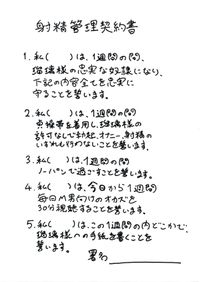 射精管理契約書
1. 私(　　)は、1週間の間、
瑠璃様の忠実な奴隷になり、
下記の内容全てを忠実に
守ることを誓います。
2. 私(　　)は、1週間の間
貞操帯を着用し、瑠璃様の
許可なしに勃起、オナニー、射精の
いずれも行わないことを誓います。
3. 私(　　)は、1週間の間
ノーパンで過ごすことを誓います。
4. 私(　　)は、今日から1週間
毎日M男向けのオカズを
30分視聴することを誓います。
5. 私(　　)は、この1週間のどこかで、
瑠璃様への手紙を書くことを
誓います。
署名